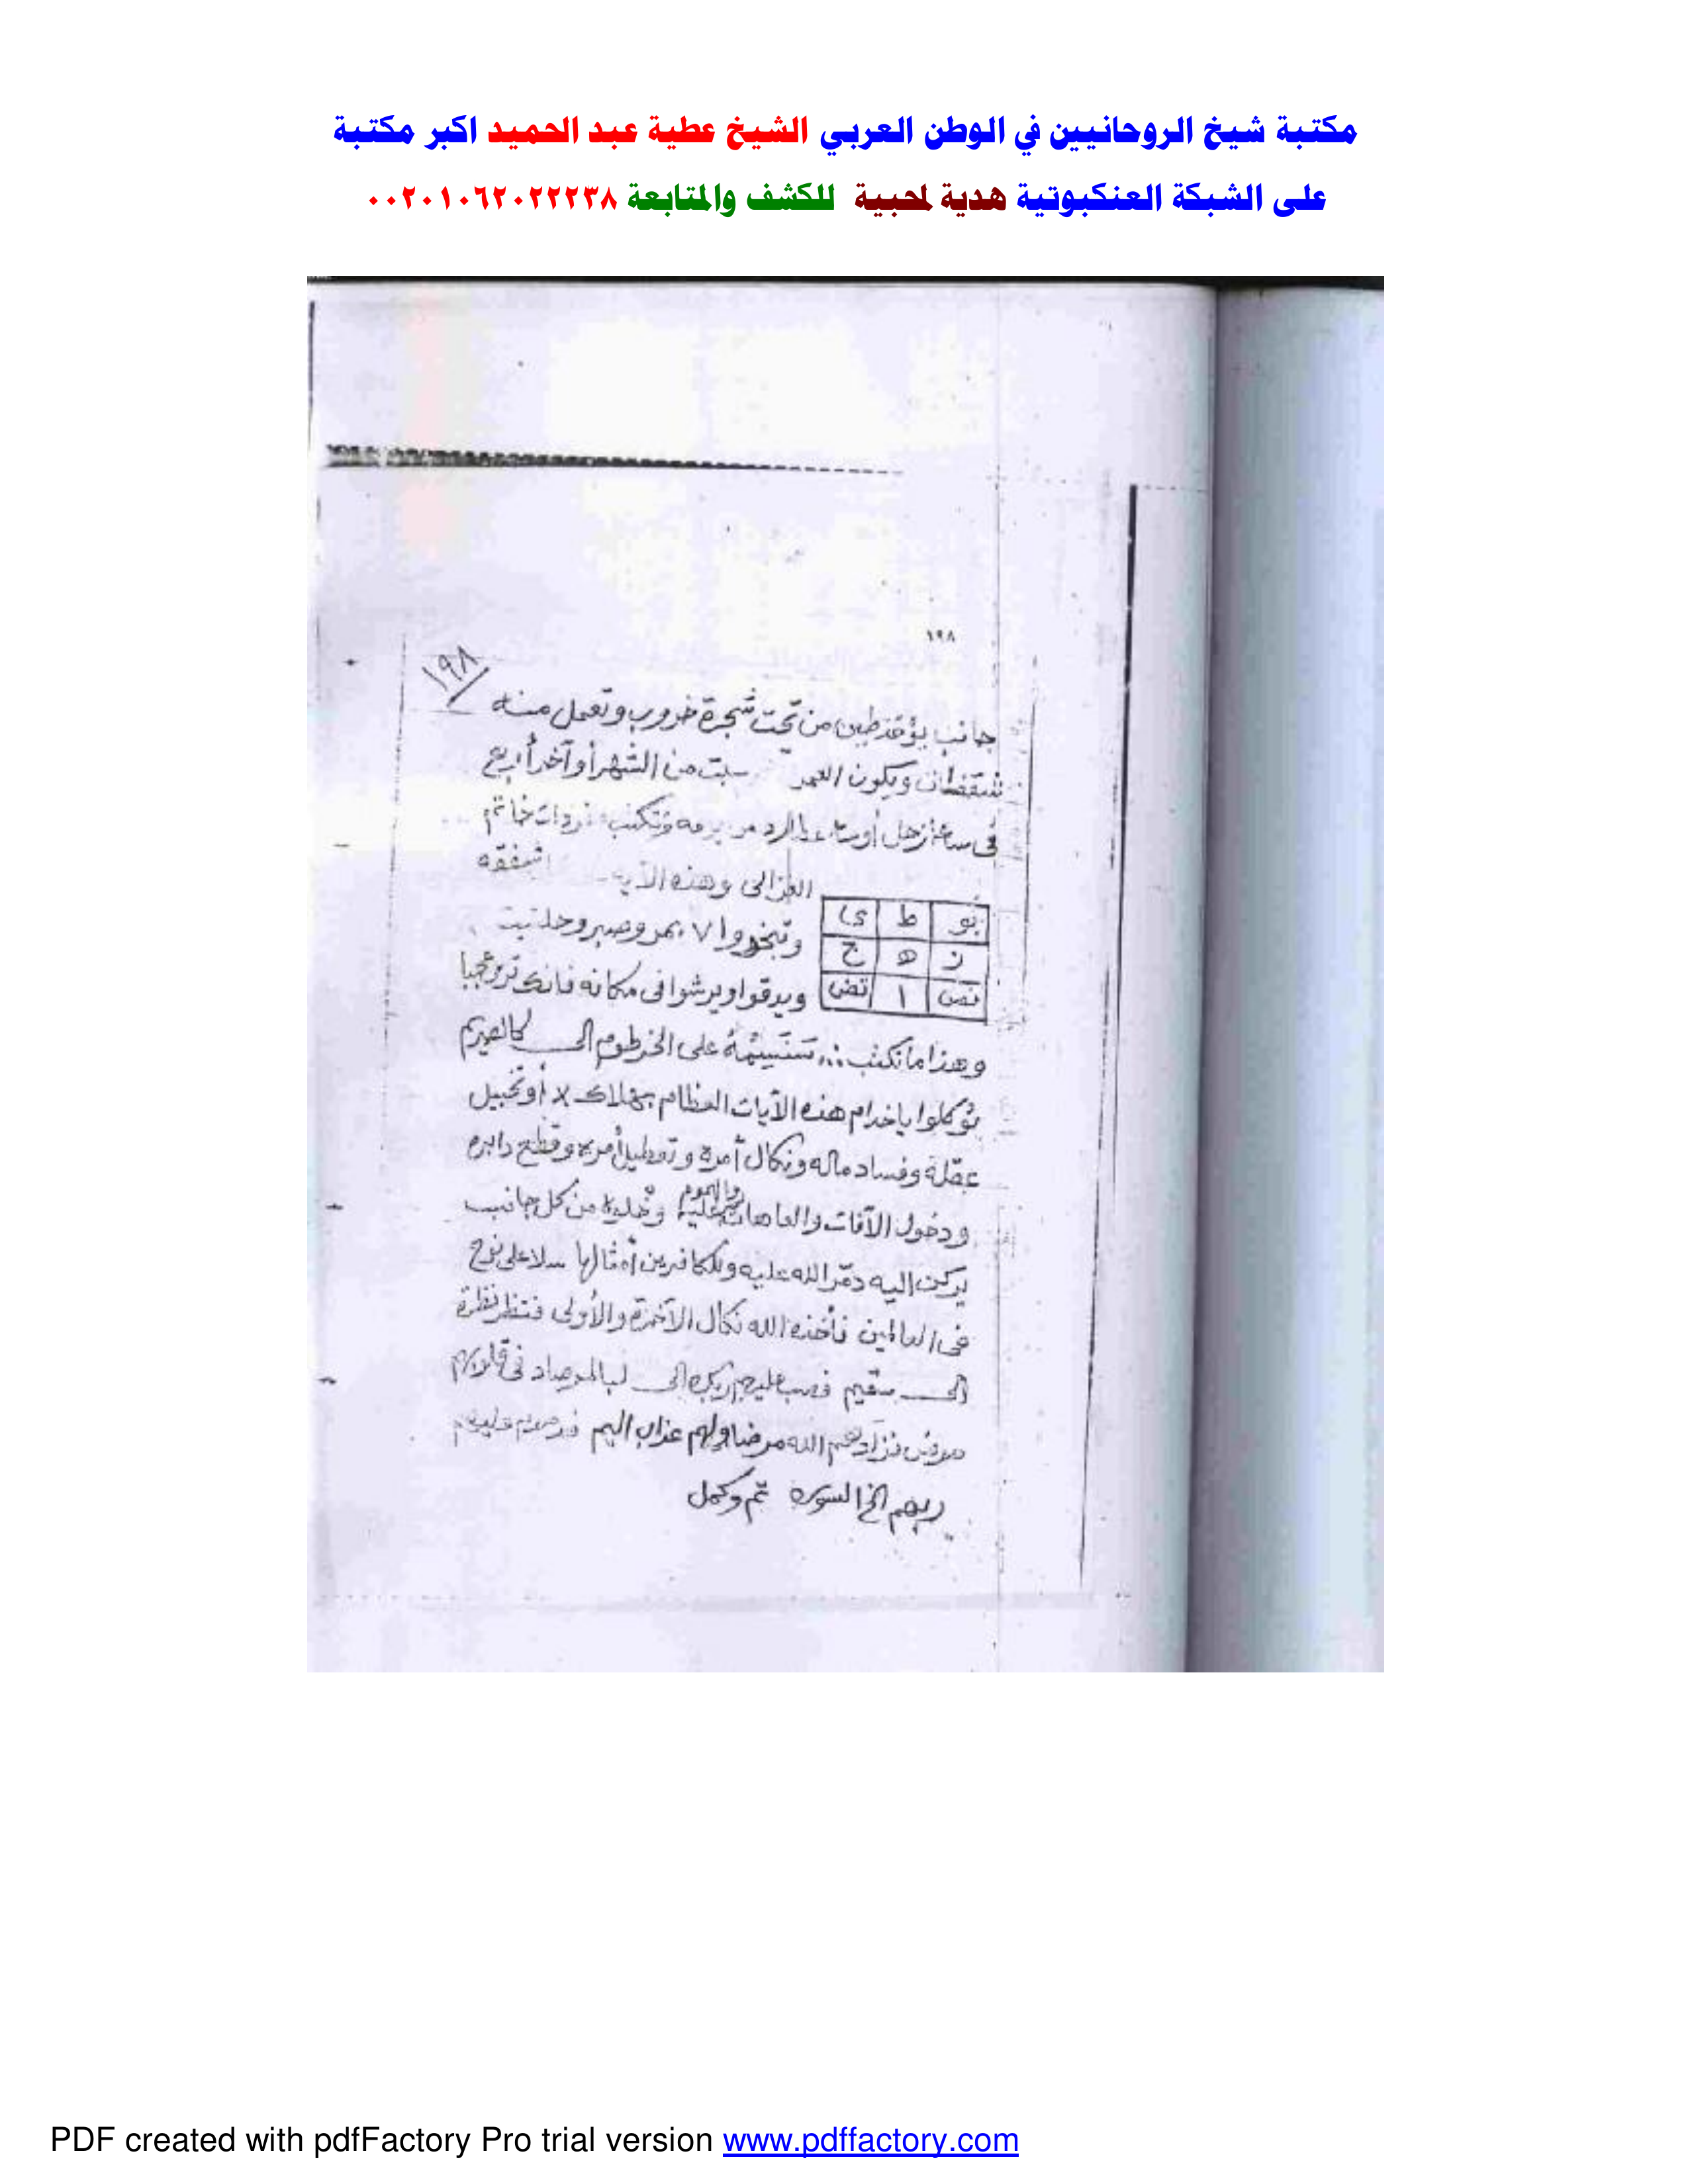 مكتبة شيخ الروحانيين في الوطن العربي الشيخ عطية عبد الحميد اكبر مكتبة
على الشبكة العنكبوتية هدية لمحبية للكشف والمتابعة ٠٠٢٠١٠٦٢٠٢٢٢٣٨
١٩٨
١٩٨
جانب يؤخذ طين من تحت شجرة خروب وتعمل منه
شقفات ويكون القمر سبت من الشهر أو آخر أربع
فى ساعة زحل أو وتكتب خاتم
الغزالى وهذه شقفه
بو ط ى
وتبخروا ٧ بمر وصبر وحلتيت
ز ه ج
ويدقوا ويرشوا فى مكانه فانك ترى عجبا
نص ا تض
وهذا ما تكتب سَنَسِمُهُ على الخرطوم الى كالصريم
توكلوا ياخدام هذه الآيات العظام بهلاك x أو تخبيل
عقله وفساد ماله ونكال أمره وتعطيل أمره وقطع دابره
ودخول الآفات والعاهات والهموم عليه من كل جانب
يركن اليه دمّر الله عليه وللكافرين أمثالها سلا على نوح
فى العالمين فأخذه الله نكال الآخرة والأولى فنظر نظرة
الى سقيم فصب عليهم ربك الى لبالمرصاد فى قلوبهم
مرض فزادهم الله مرضا ولهم عذاب اليم فدمدم عليهم
ربهم الخ السورة تم وكمل
PDF created with pdfFactory Pro trial version www.pdffactory.com